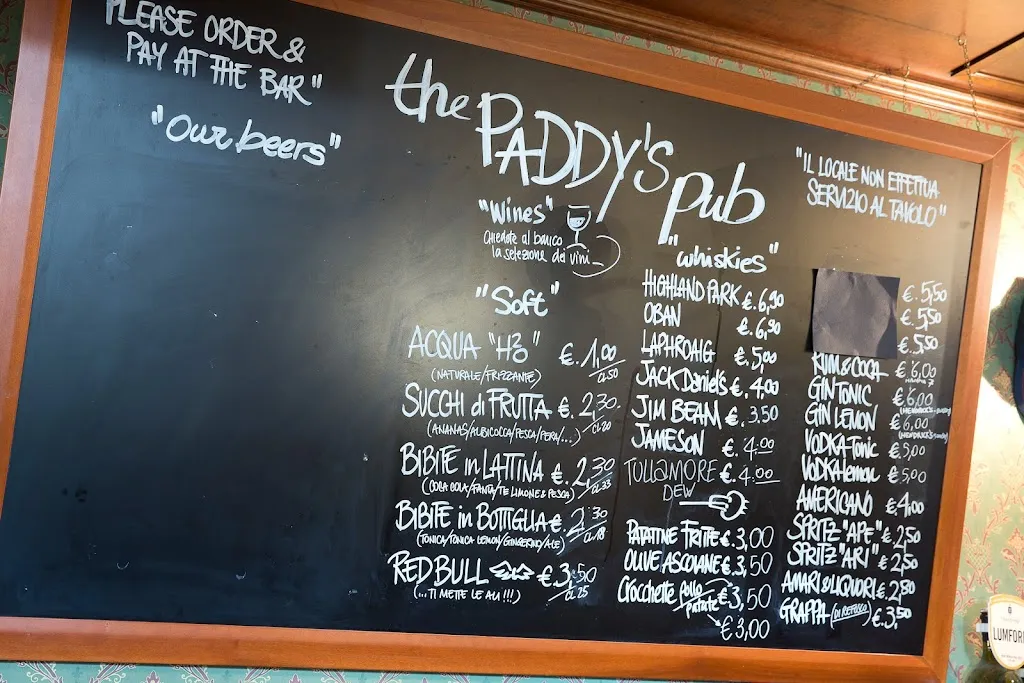 "PLEASE ORDER &
PAY AT THE BAR"
"Our beers"
the PADDY'S pub
"Wines"
Chiedete al banco
la selezione dei vini
"Soft"
ACQUA "H2O" €.1,00
(NATURALE/FRIZZANTE) CL50
SUCCHI di FRUTTA €.2,30
(ANANAS/ALBICOCCA/PESCA/PERA/...) CL20
BIBITE in LATTINA €.2,30
(COCA COLA/FANTA/TE LIMONE & PESCA) CL33
BIBITE in BOTTIGLIA €.2,30
(TONICA/TONICA LEMON/GINGERINO/ALE) CL18
RED BULL €3,50
(...TI METTE LE ALI!!!) CL25
"whiskies"
HIGHLAND PARK €.6,90
OBAN €.6,90
LAPHROAIG €.5,00
JACK Daniel's €.4,00
JIM BEAM €.3.50
JAMESON €.4.00
TULLAMORE €.4.00
DEW
PATATINE FRITTE €.3,00
OLIVE ASCOLANE €.3,50
Crocchette pollo €3,50
patate €3,00
"IL LOCALE NON EFFETTUA
SERVIZIO AL TAVOLO"
€.5,50
€.5,50
€.5,50
RUM & COCA €6,00
GIN TONIC €6,00
GIN LEMON €6,00
VODKA Tonic €5,00
VODKA lemon €5,00
AMERICANO €4,00
SPRITZ "APE" €2,50
SPRITZ "ARI" €2,50
AMARI & LIQUORI €.2,80
GRAPPA (DI REFOSCO) €.3,50
LUMFOR